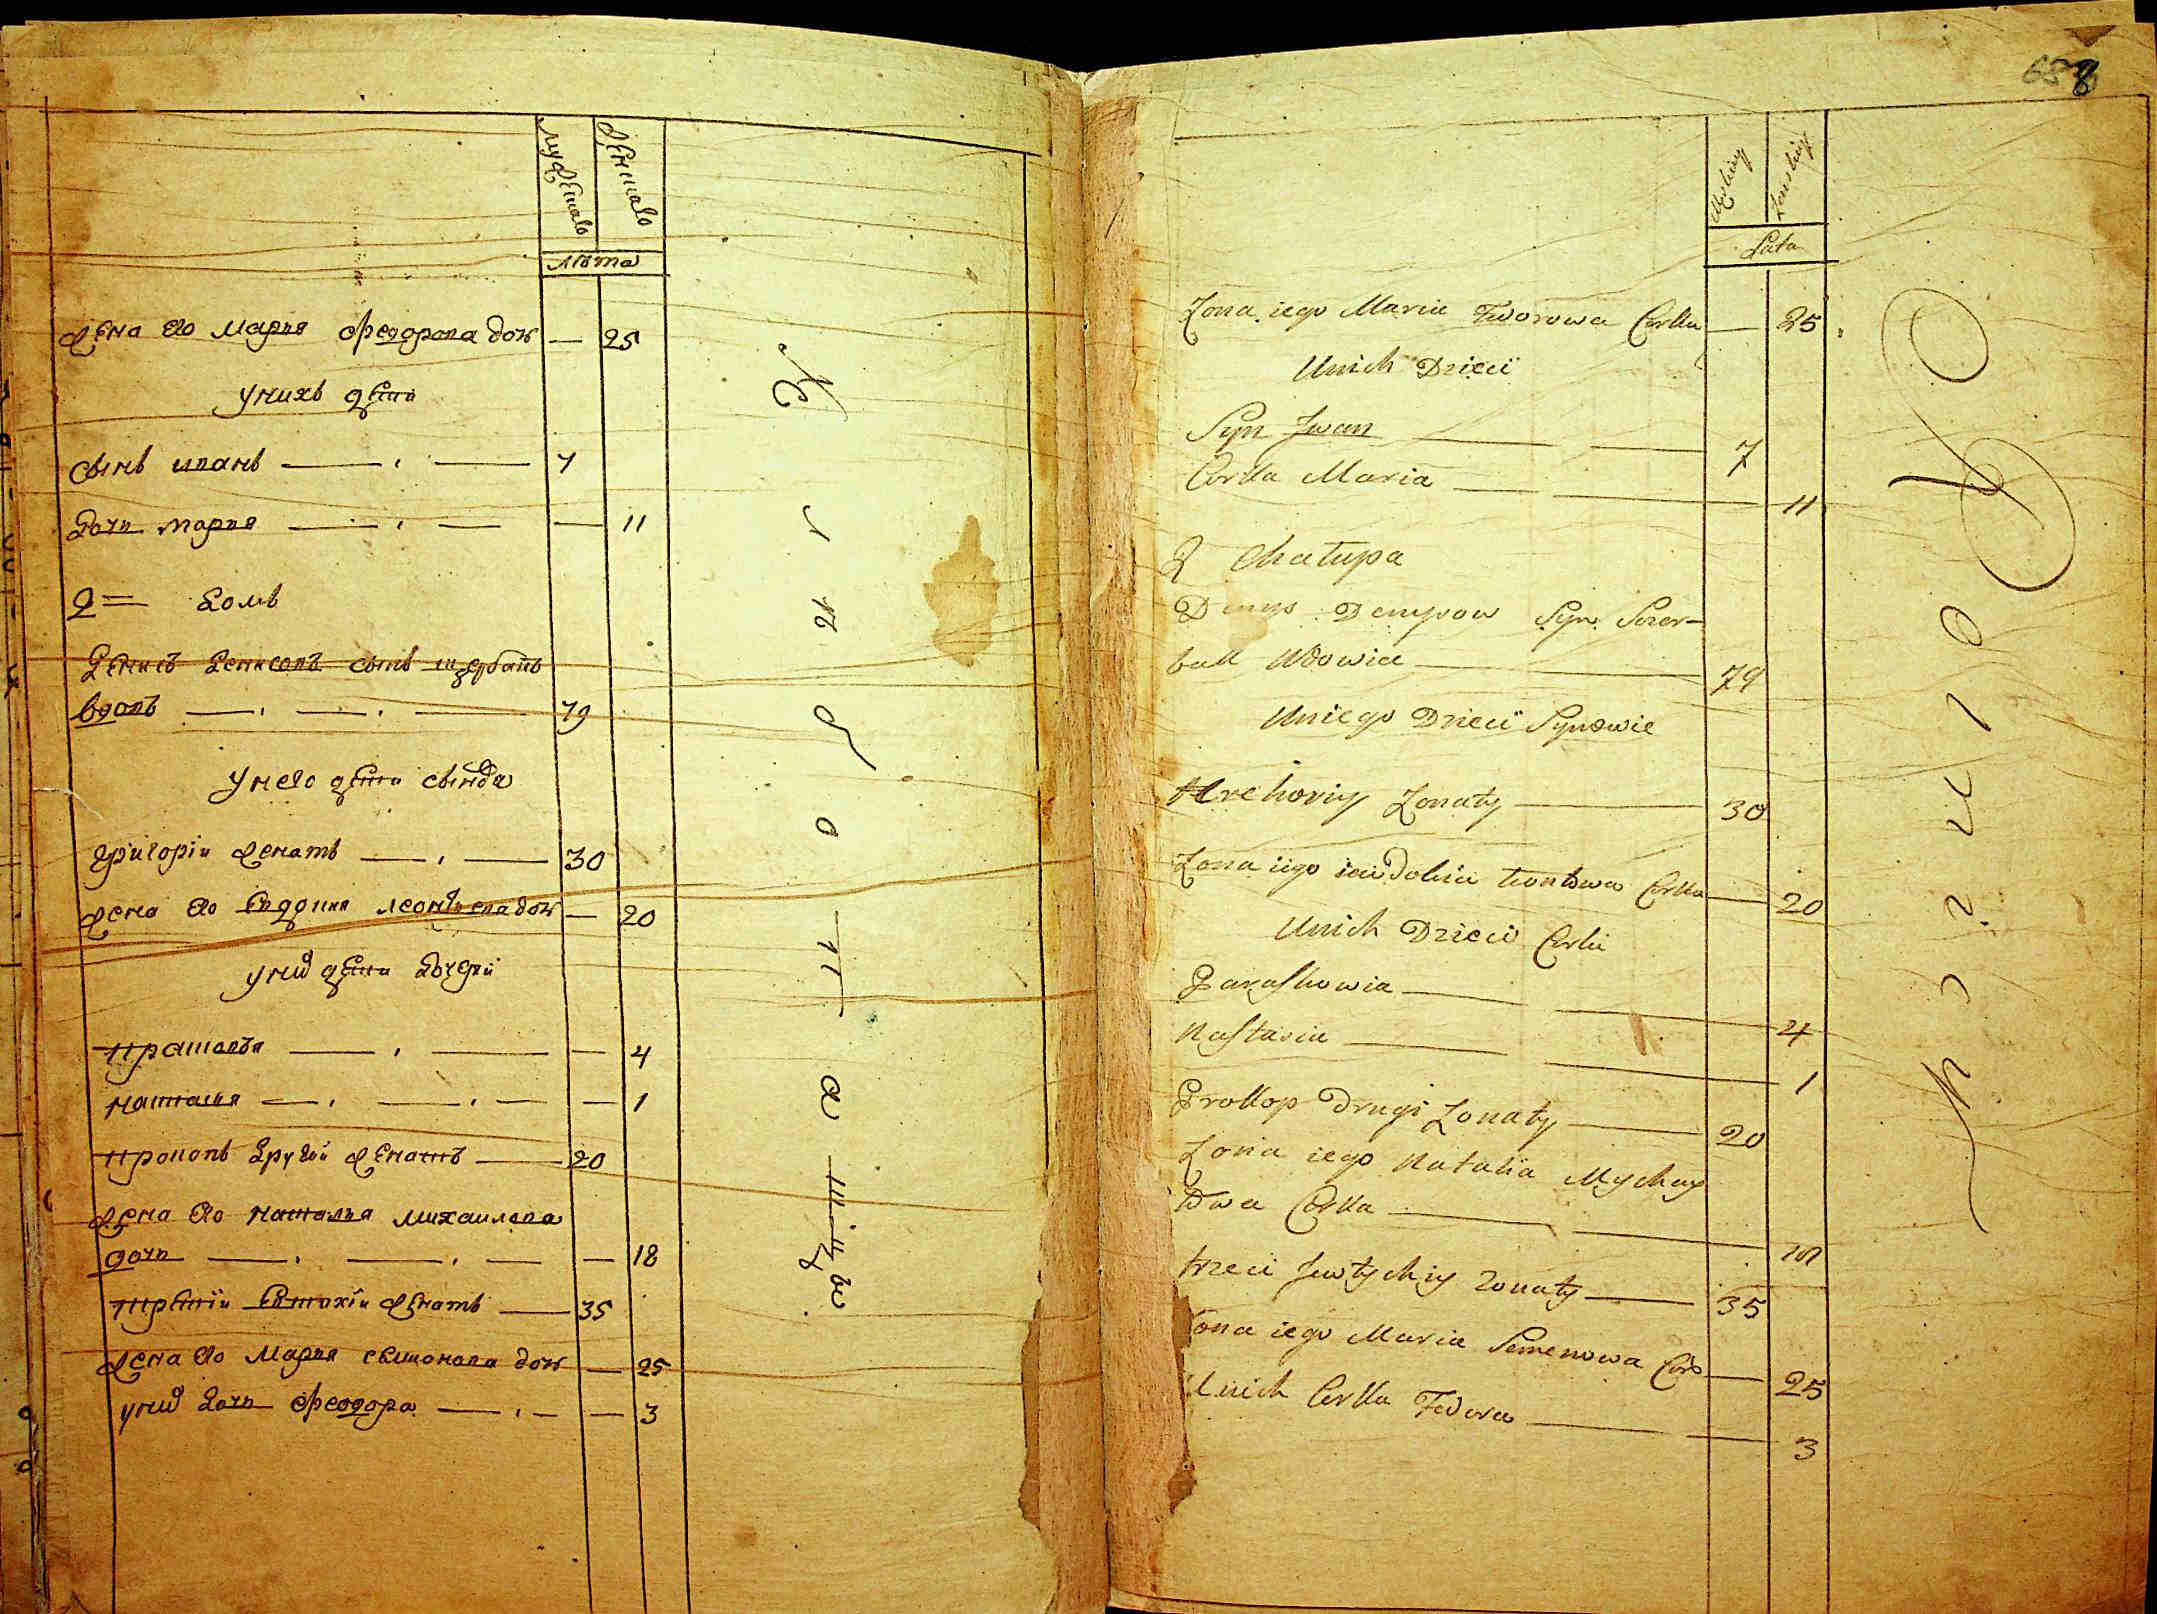 мужеска
женска
лѣта
жена его мария феодорова доч — 25
у нихъ дети
сынъ иванъ — 7
дочь мария — 11
2 домъ
Денисъ Денисовъ сынъ щербанъ
вдовъ — 79
у него дети сынов
григорїи женатъ — 30
жена его Евдокия леонтьева доч — 20
у них дети дочери
прасковя — 4
наталия — 1
прокопъ другой женатъ — 20
жена его наталия михаилова
дочь — 18
третїи Евтихїи женатъ — 35
жена его Мария симонова доч — 25
у них дочь феодора — 3
658
Męskiey
Żenskiey
Lata
Zona iego Maria Fworowa Corka — 25
Unich Dzieci
Syn Jwan — 7
Corka Maria — 11
2 Chatupa
Denys Denysow Syn Szczer-
bak Wdowiec — 79
Uniego Dzieci Synowie
Hrehoriy Zonaty — 30
Zona iego iewdokia Leontowa Corka — 20
Unich Dzieci Corki
Paraskowia — 4
Nastasia — 1
Prokop Drugi Zonaty — 20
Zona iego Natalia Mychay
Corka — 18
trzeci Jewtychiy Zonaty — 35
Zona iego Maria Semenowa Cor — 25
Unich Corka Fedora — 3